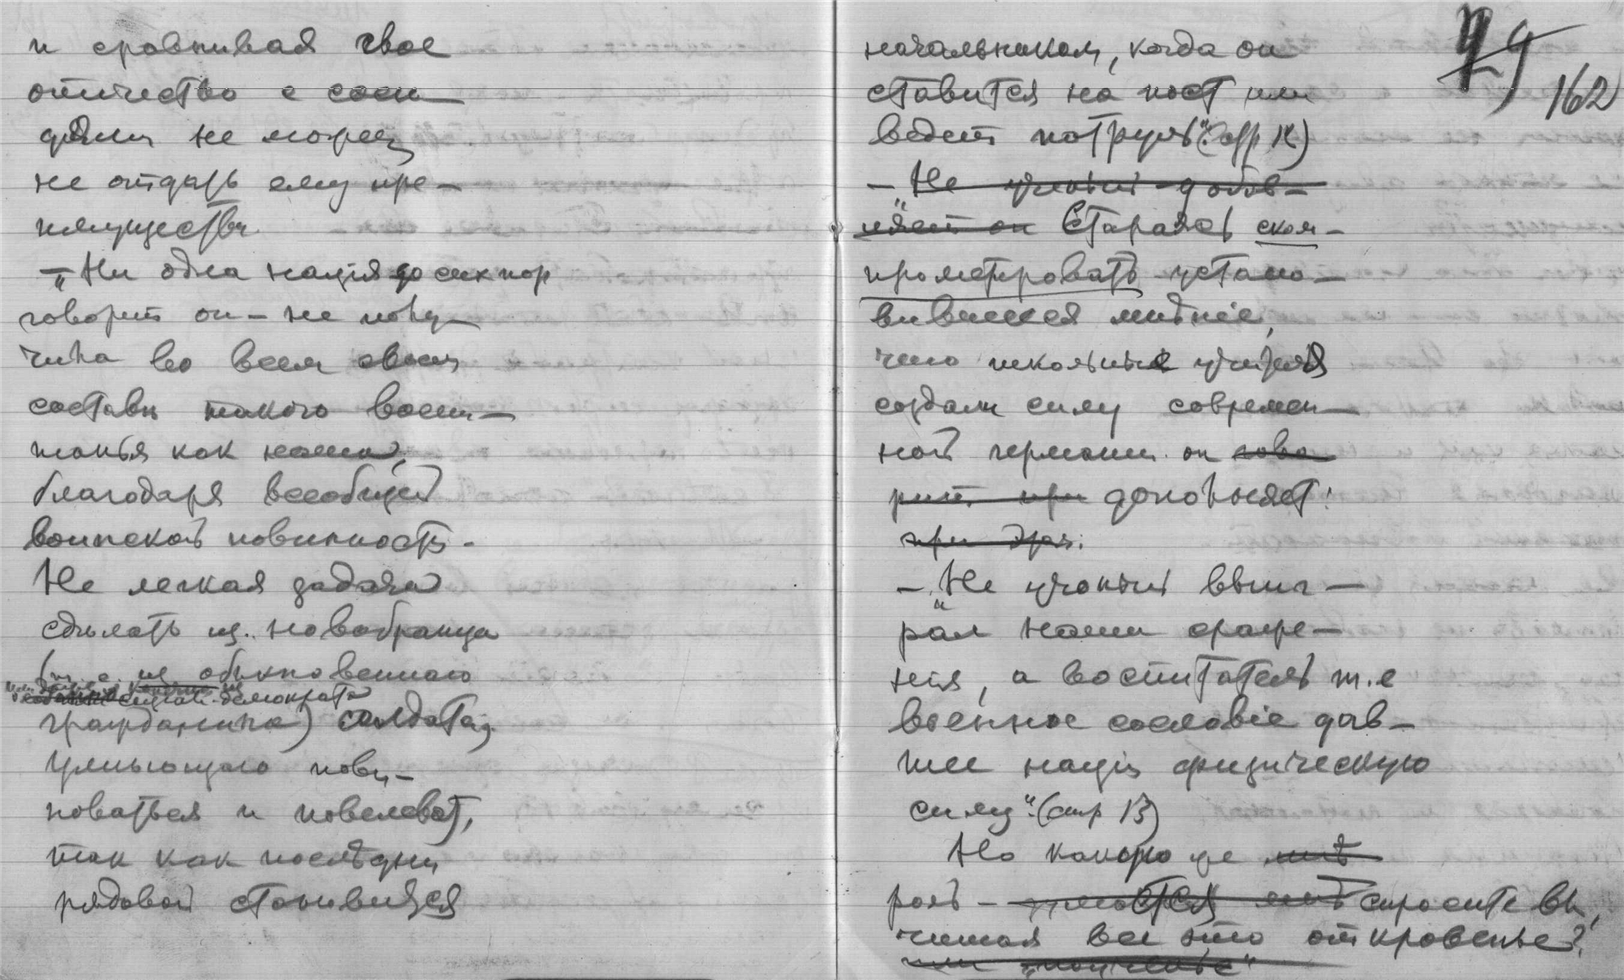 и сравнивая свое
отечество с сосе
дями не может
не отдать ему пре-
имущества.
— „Ни одна нация до сих пор
говорит он – не полу-
чила во всем своем
составе такого воспи-
танья как наша,
благодаря всеобщей
воинской повинности.
Не легкая задача
сделать из новобранца
(т. е. из обыкновенного
гражданина) солдата,
умеющего пови-
новаться и повелевать,
так как последний
рядовой становится
79
162
начальником, когда он
ставится на пост или
ведет патруль" (стр 12)
— „Не учоный добав-
ляет он Стараясь ском-
прометировать устано-
вившееся мнѣніе,
что школьные учителя
создали силу современ-
ной германии он гово
рит при дополняет:
при этом:
— „Не учоный выиг-
рал наши сраже-
нія, а воспитатель т. е
военное сословіе дав-
шее націи физическую
силу". (стр 13)
Но какого же
родъ – спросите вы,
читая все это откровенье?
или "поученье"